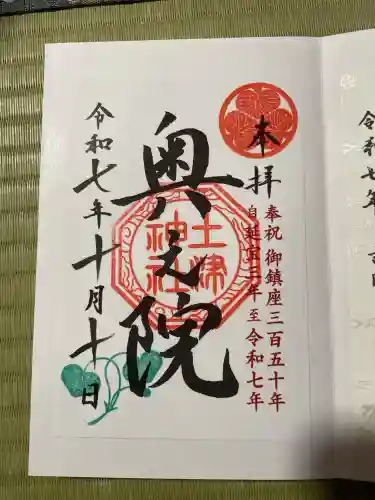 奉拝
奉祝 御鎮座三百五十年
自延宝三年 至令和七年
奥之院
土津
神社
令和七年十月十日
令和七年